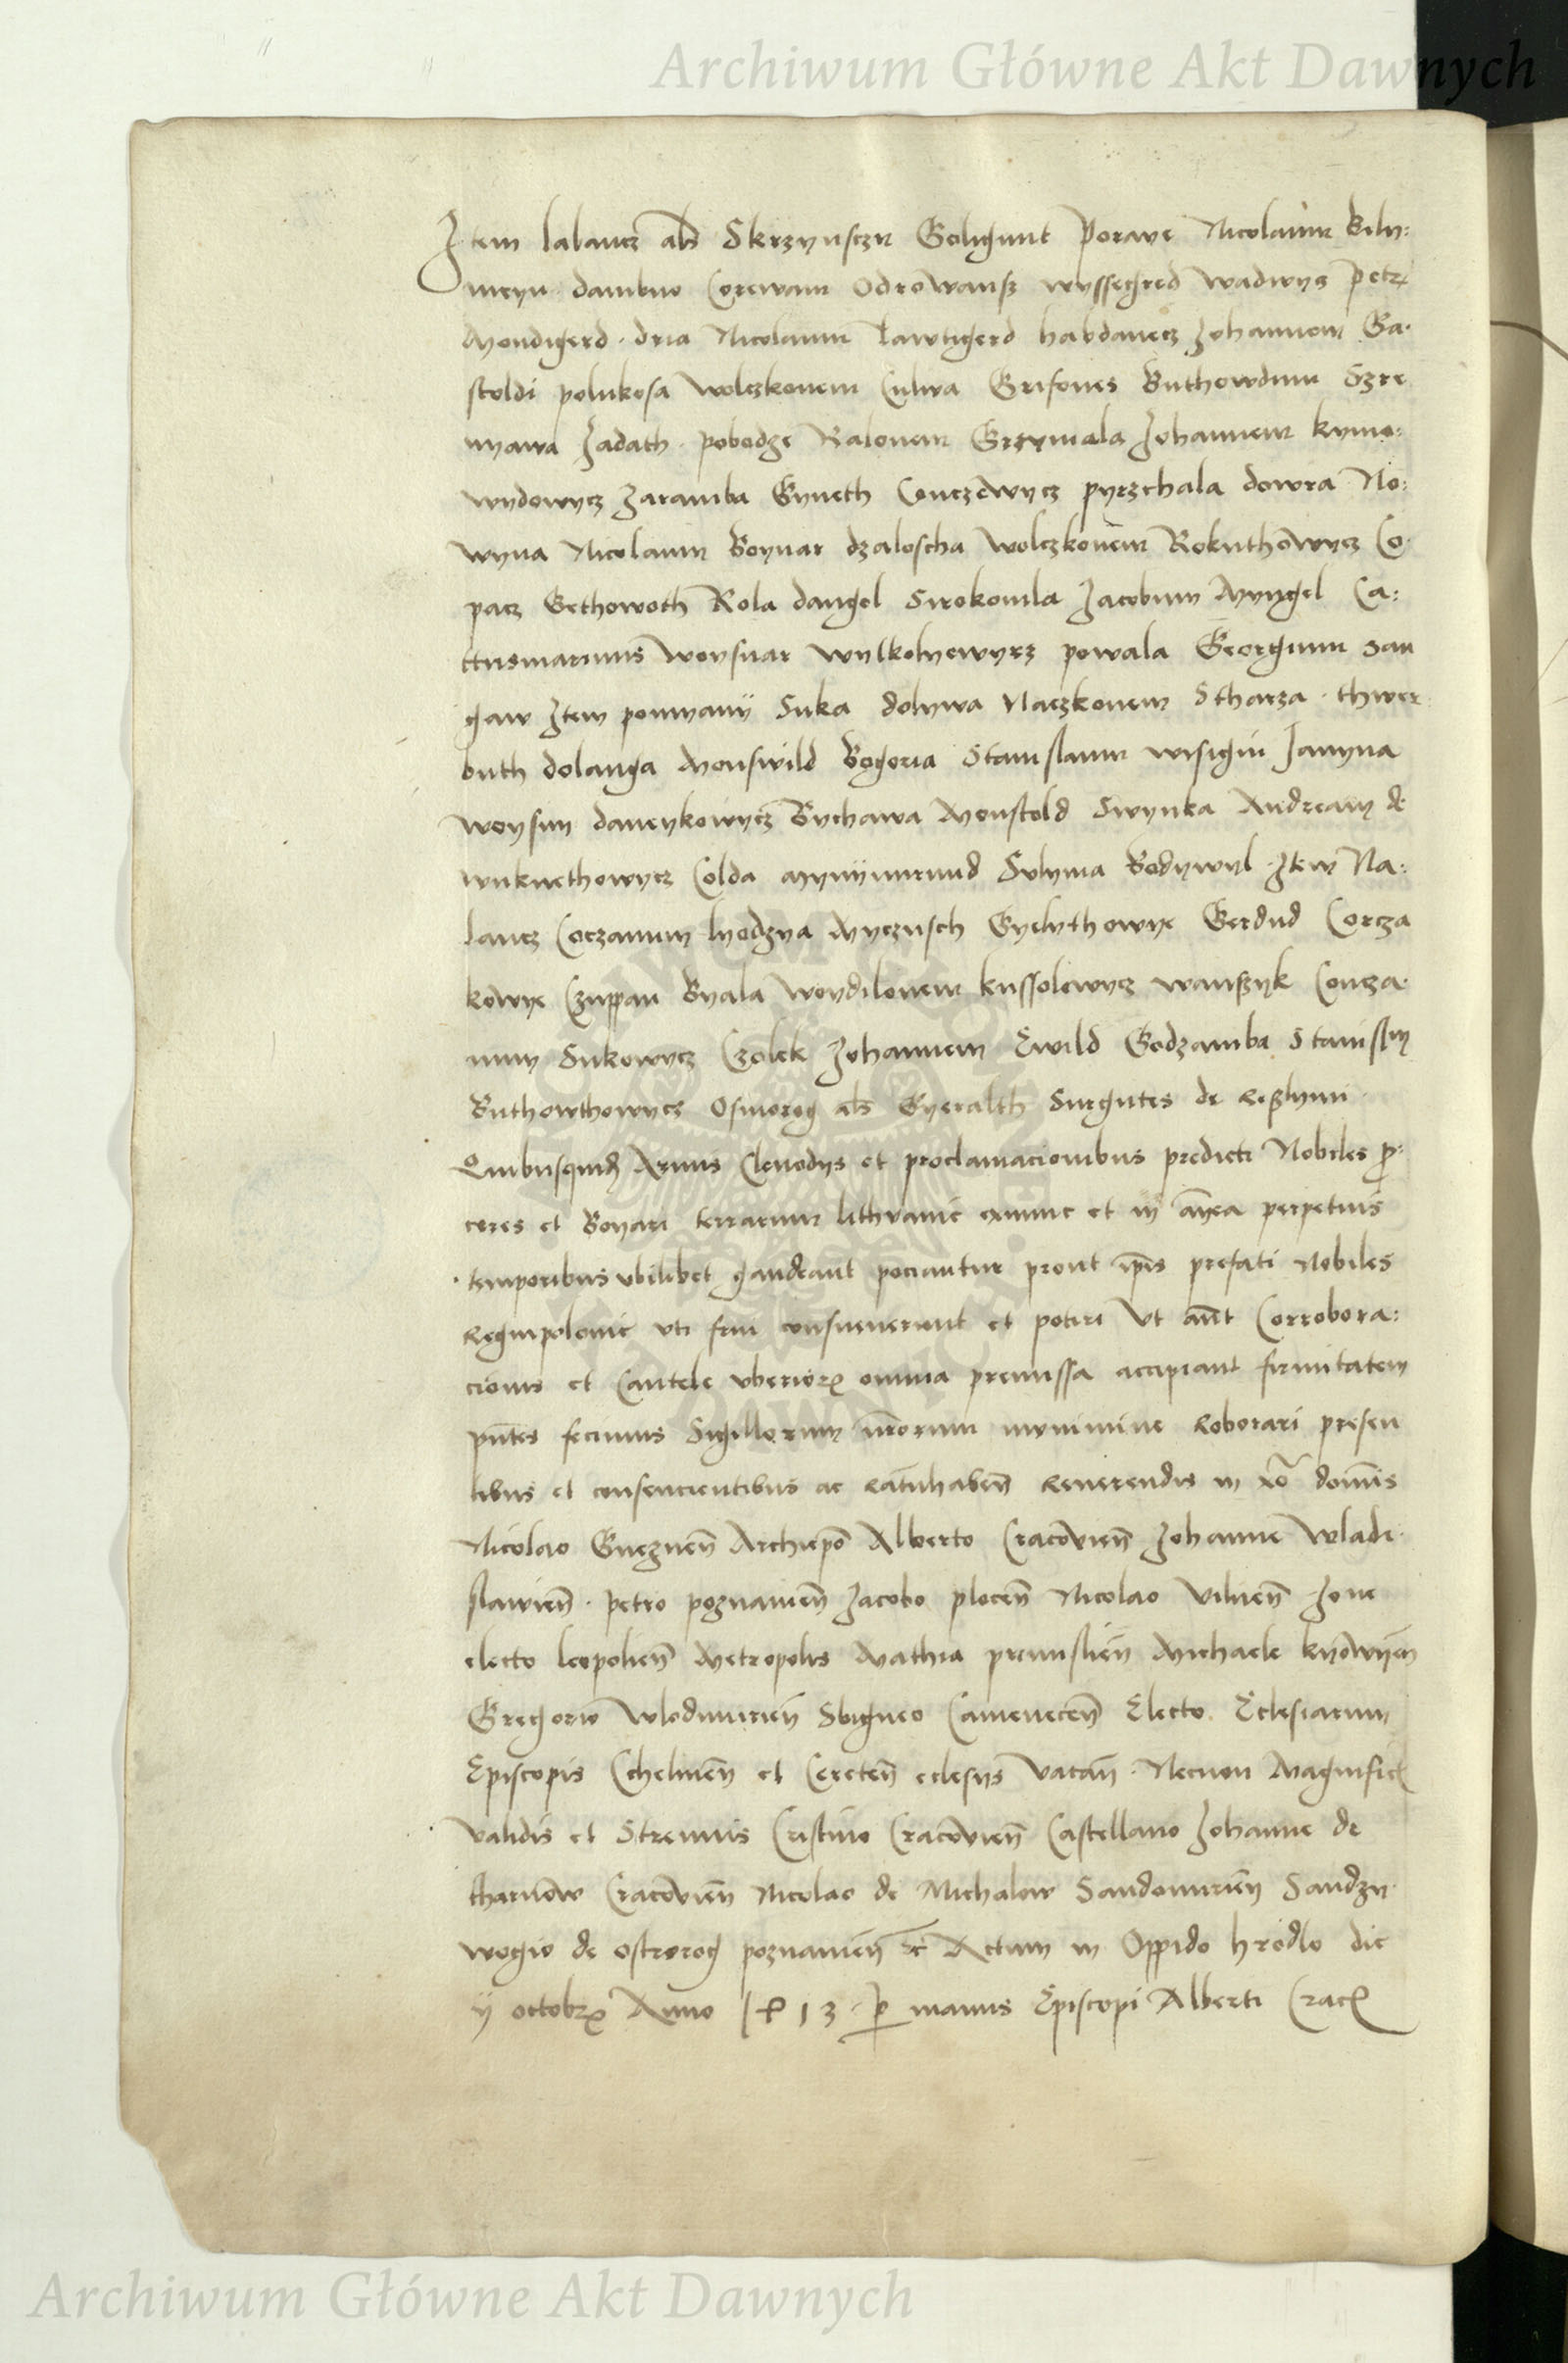 Archiwum Główne Akt Dawnych
Item labancz als Skrzynsczy Goligunt Poraye Nicolaum Bily:
meyn dambno Corewam Odrowansz wyssegred wadwys petrum
Mondigerd. dria Nicolaum Tawtigerd habdanecz Johannem Ga:
stoldi polukosa wolczkonem Culwa Grifones Buthowdum Szre
nyawa Jadath. pobodze Ralonem Grzymala Johannem kymo:
wydowycz Zaramba Gyneth Conczewycz pyrzchala dowra No:
wyna Nicolaum Boynar dzaloscha wolczkonem Rokuthowycz Co
pacz Gethowoth Rola dangel Sirokomla Jacobum Myngel Ca:
ttusmarinus woysnar wylkolyewycz powala Georgium san
gaw Item pomyany Suka dolywa Naczkonem Stharza. thwer
buth dolanga Monswild Bogoria Stanislaum wisigin Janyna
woysim daneykowycz Bychawa Monstold Swynka Andream de
wuknethowycz Colda mynymund Sulyma Bodywyl. Item Na:
lancz Coczanum lyodzya Myczusch Gyelythowye Gerdud Corcza
kowye Czuppan Byala woydilonem kussolewycz wanszyk Concza:
num Sukowycz Czolek Johannem Ewild Godzamba Stanislm
Buthowthowycz Osmorog als Gyeralth Surgutes de reszkyni
Quibusquidem Armis Clenodys et proclamacionibus predicti Nobiles pro:
ceres et Boyari terrarum lithvanie exnunc et in antea perpetuis
temporibus vbilibet gaudeant pociantur prout ipsis prefati Nobiles
Regnipolonie uti frui consueuerunt et potiri Vt autem Corrobora:
cionis et Cautele vberioris omnia premissa accipiant firmitatem
pntes fecimus Sigillorum nrorum munimine Roborari presen
tibus et consencientibus ac ratuhaben Reuerendis in xpo dominis
Nicolao Gneznen Archiepo Alberto Cracovien Johanne Wladi:
slavien. Petro poznanien Jacobo plocen Nicolao Vilnen Jone
electo leopolien Metropolis Mathia premislien Michaele kyowyen
Gregorio Wlodimirien Sbigneo Camenecen Electo. Eclesiarum
Episcopis Chelmen et Cereten eclesys vacan. Necnon Magnificis
validis et Strenuis Cristino Cracovien Castellano Johanne de
tharnow Cracovien Nicolao de Michalow Sandomirien Sandzy:
wogio de ostrorog poznanien etc Actum in Oppido hrodlo die
ij octobris Anno 1413. per manus Episcopi Alberti Crac
Archiwum Główne Akt Dawnych